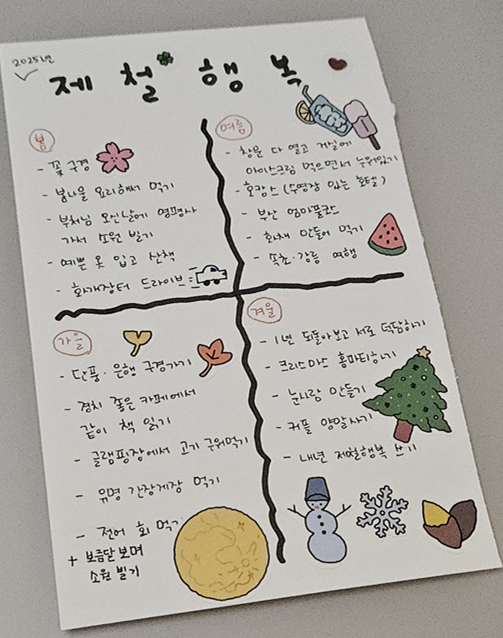 2025년
제철행복
봄
- 꽃 구경
- 봄나물 요리해서 먹기
- 부처님 오신날에 연평사
가서 소원 빌기
- 예쁜 옷 입고 산책
- 화개장터 드라이브
여름
- 창문 다 열고 거실에
아이스크림 먹으면서 누워있기
- 호캉스 (수영장 있는 호텔)
- 부산 엄마풀코스
- 화채 만들어 먹기
- 속초·강릉 여행
가을
- 단풍·은행 구경가기
- 경치 좋은 카페에서
같이 책 읽기
- 글램핑장에서 고기 구워먹기
- 유명 간장게장 먹기
- 전어 회 먹기
+ 보름달 보며
소원 빌기
겨울
- 1년 되돌아보고 서로 덕담하기
- 크리스마스 홈파티하기
- 눈사람 만들기
- 커플 양말사기
- 내년 제철행복 쓰기